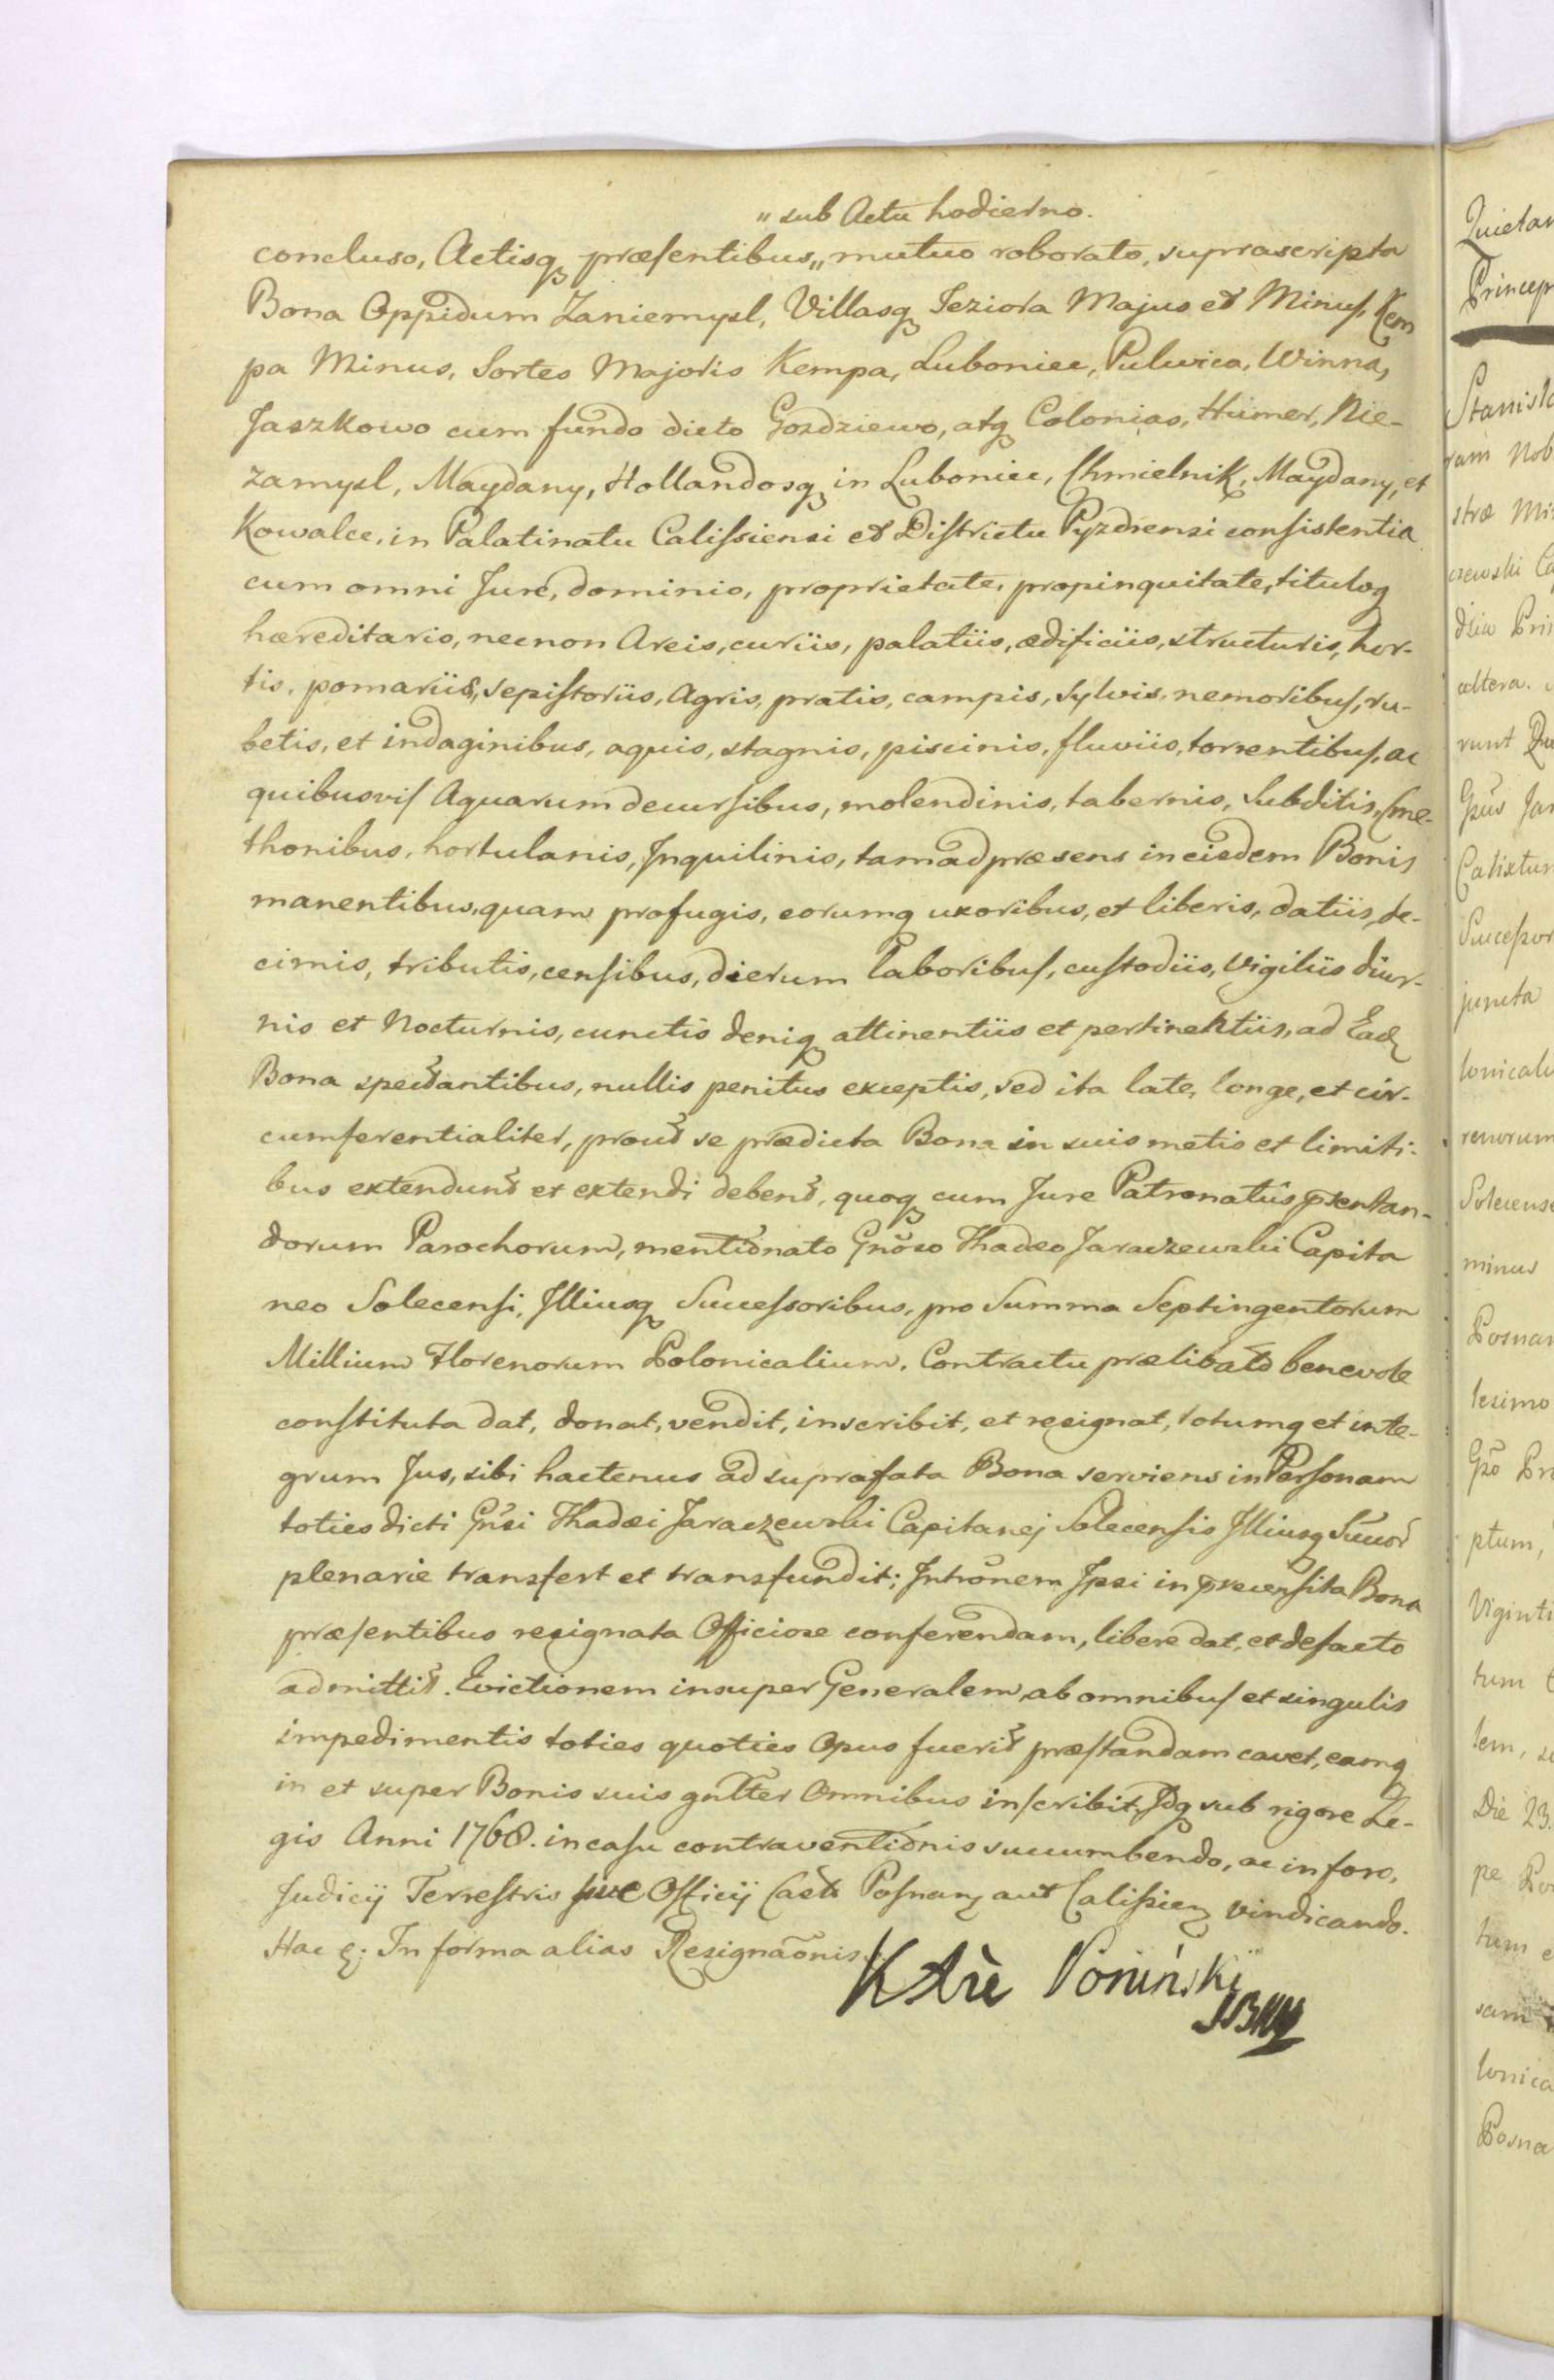 „ sub Actu hodierno.
concluso, Actisq præsentibus „ mutuo roborato, suprascripta
Bona Oppidum Zaniemysl, Villasq Jeziora Majus et Minus, Kem
pa Minus, Sortes Majoris Kempa, Luboniec, Pulwica, Winna,
Jaszkowo cum fundo dicto Gozdziewo, atq Colonias, Humer, Nie-
zamysl, Maydany, Hollandosq in Luboniec, Chmielnik, Maydany, et
Kowalce, in Palatinatu Calissiensi et Districtu Pyzdrensi consistentia
cum omni Jure, dominio, proprietate, propinquitate, tituloq
hæreditario, necnon Areis, curiis, palatiis, ædificiis, structuris, hor-
tis, pomariis, sepistoriis, Agris, pratis, campis, sylvis, nemoribus, ru-
betis, et indaginibus, aquis, stagnis, piscinis, fluviis, torrentibus, ac
quibusvis Aquarum decursibus, molendinis, tabernis, Subditis, Cme-
thonibus, hortulanis, Inquilinis, tam ad præsens in eisdem Bonis
manentibus, quam profugis, eorumq uxoribus, et liberis, datiis, de-
cimis, tributis, censibus, dierum Laboribus, custodiis, Vigiliis diur-
nis et Nocturnis, cunctis deniq attinentiis et pertinentiis, ad Eadz
Bona spectantibus, nullis penitus exceptis, sed ita late, longe, et cir-
cumferentialiter, prout se prædicta Bona in suis metis et limiti-
bus extendunt et extendi debent, quoq cum Jure Patronatûs p̄sentan-
dorum Parochorum, mentionato Gnōso Thadeo Jaraczewski Capita
neo Solecensi, Illiusq Successoribus, pro Summa Septingentorum
Millium Florenorum Polonicalium, Contractu prælibato benevole
constituta dat, donat, vendit, inscribit, et resignat, totumq et inte-
grum Jus, sibi hactenus ad suprafata Bona serviens in Personam
toties dicti Gn̄si Thadæi Jaraczewski Capitanej Solecensis Illiusq Succor
plenarie transfert et transfundit; Intrōnem Ipsi in p̄recensita Bona
præsentibus resignata Officiose conferendam, libere dat, et defacto
admittit. Evictionem insuper Generalem ab omnibus et singulis
impedimentis toties quoties Opus fuerit præstandam cavet, eamq
in et super Bonis suis gn̄lter Omnibus inscribit, Idq sub rigore Le-
gis Anni 1768. in casu contraventionis succumbendo, ac in foro,
Judicij Terrestris sive Officij Castr Posnanz aut Calissienz vindicando.
Hac q. In forma alias Resignaōnis.
K Are Poniński

Quietan
Princep
Stanisla
ram Nob
stræ Mi
czewski Ca
dzia Pri
altera.
runt Qu
Gn̄us Jar
Calixtum
Successor
juncta
lonicali
renorum
Solecens
minus
Posnan
lesimo
Gn̄o Pr
ptum,
Viginti
tum
lem, s
Die 23.
pe Po
tum e
sam
lonica
Posna